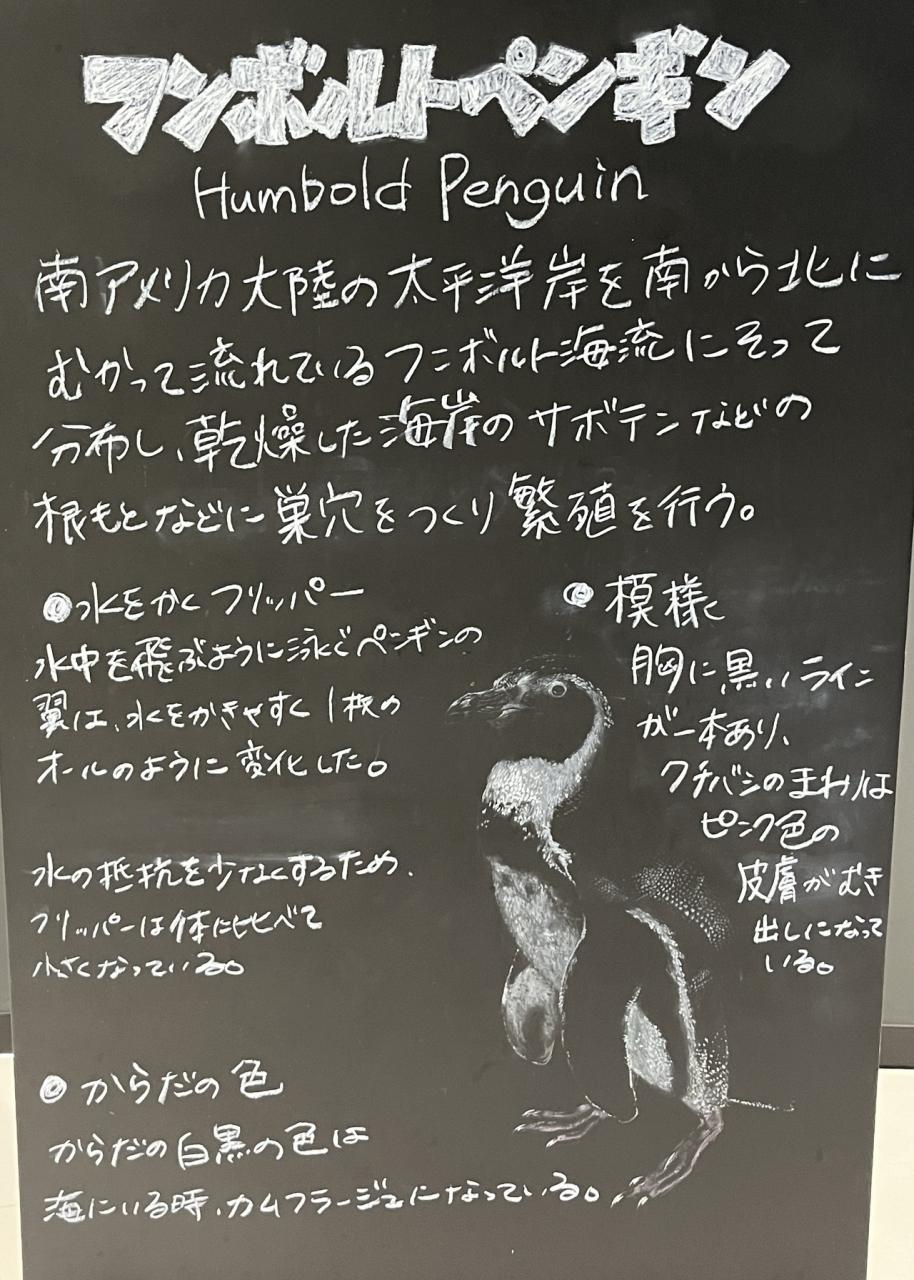 フンボルトペンギン
Humbold Penguin
南アメリカ大陸の太平洋岸を南から北に
むかって流れているフンボルト海流にそって
分布し、乾燥した海岸のサボテンなどの
根もとなどに巣穴をつくり繁殖を行う。
◎水をかくフリッパー
水中を飛ぶように泳ぐペンギンの
翼は、水をかきやすく1枚の
オールのように変化した。
水の抵抗を少なくするため、
フリッパーは体に比べて
小さくなっている。
◎模様
胸に黒いライン
が一本あり、
クチバシのまわりは
ピンク色の
皮膚がむき
出しになって
いる。
◎からだの色
からだの白黒の色は
海にいる時、カムフラージュになっている。